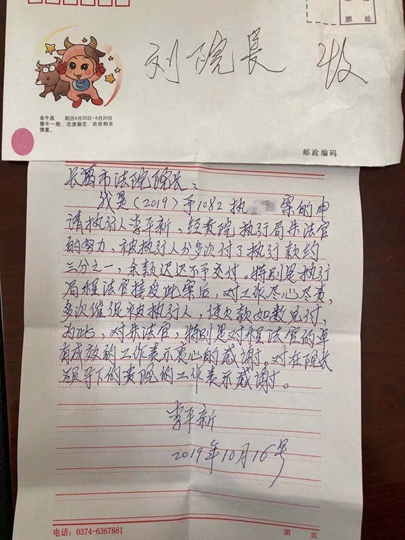 刘院長 收
金牛座 阳历4月20日-5月20日
邮政编码
长葛市法院院长:
我是(2019)予1082执 号的申
请执行人李平新,经贵院执行局朱法官
的努力,被执行人分多次付了执行款约
三分之一,余款迟迟不予交付。特别是执行
局程法官接受此案后,对工作尽心尽责,
多次催促被执行人,该欠款如数兑付,
为此,对朱法官,特别是对程法官的卓
有成效的工作表示衷心的感谢,对在院长
领导下的贵院的工作表示感谢。
李平新
2019年10月16号
电话:0374-6367881
第 页